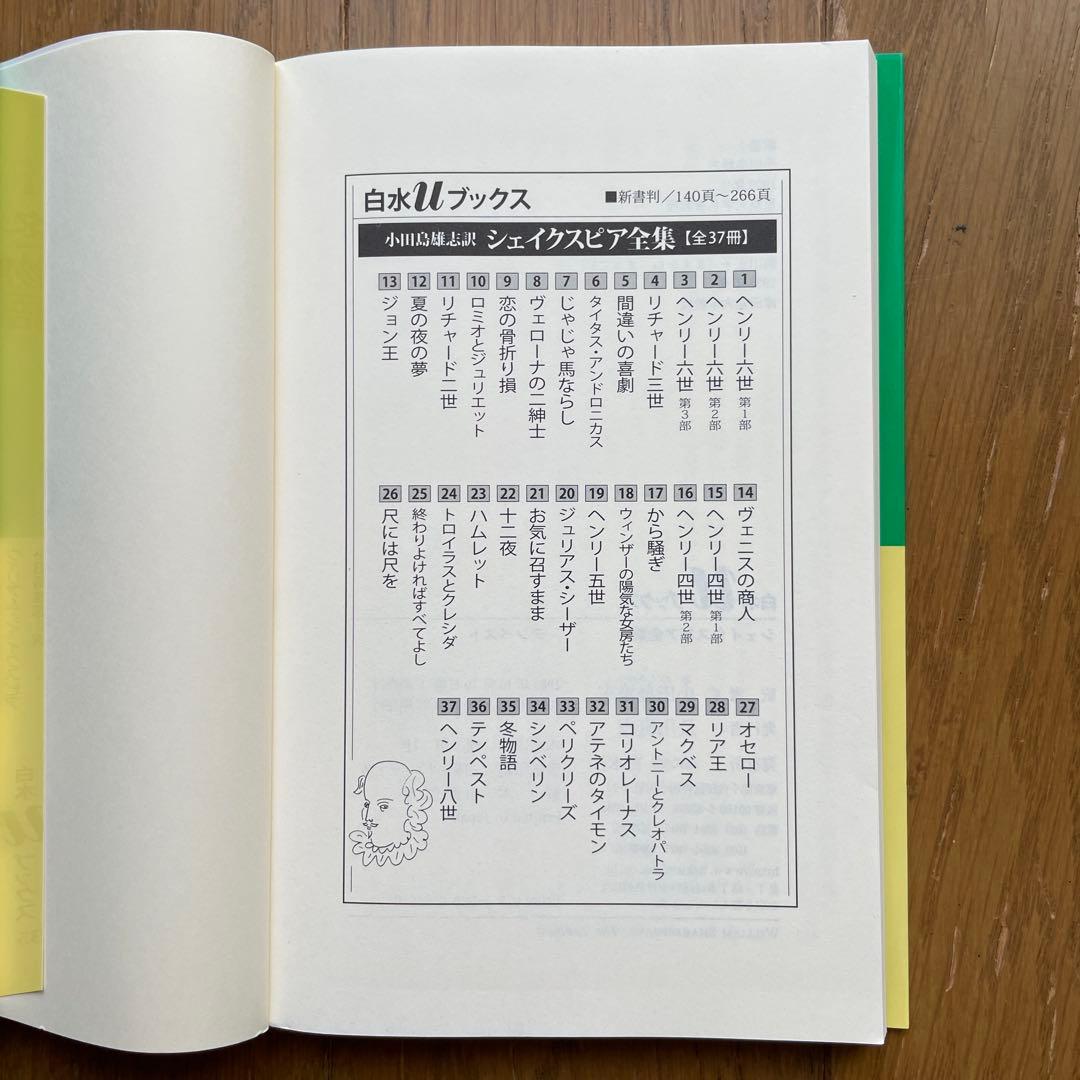 白水uブックス
■新書判／140頁～266頁
小田島雄志訳 シェイクスピア全集【全37冊】
1 ヘンリー六世 第1部
2 ヘンリー六世 第2部
3 ヘンリー六世 第3部
4 リチャード三世
5 間違いの喜劇
6 タイタス・アンドロニカス
7 じゃじゃ馬ならし
8 ヴェローナの二紳士
9 恋の骨折り損
10 ロミオとジュリエット
11 リチャード二世
12 夏の夜の夢
13 ジョン王
14 ヴェニスの商人
15 ヘンリー四世 第1部
16 ヘンリー四世 第2部
17 から騒ぎ
18 ウィンザーの陽気な女房たち
19 ヘンリー五世
20 ジュリアス・シーザー
21 お気に召すまま
22 十二夜
23 ハムレット
24 トロイラスとクレシダ
25 終わりよければすべてよし
26 尺には尺を
27 オセロー
28 リア王
29 マクベス
30 アントニーとクレオパトラ
31 コリオレーナス
32 アテネのタイモン
33 ペリクリーズ
34 シンベリン
35 冬物語
36 テンペスト
37 ヘンリー八世